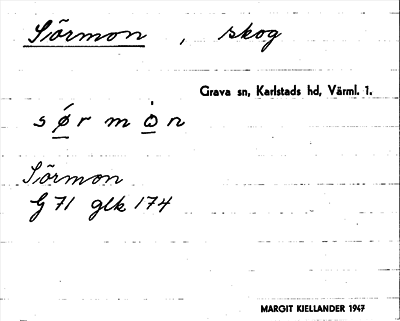 Sörmon, skog
Grava sn, Karlstads hd, Värml. 1.
sǿ̱r mȯ̱n
Sörmon
G 71 glk 174
MARGIT KIELLANDER 1947